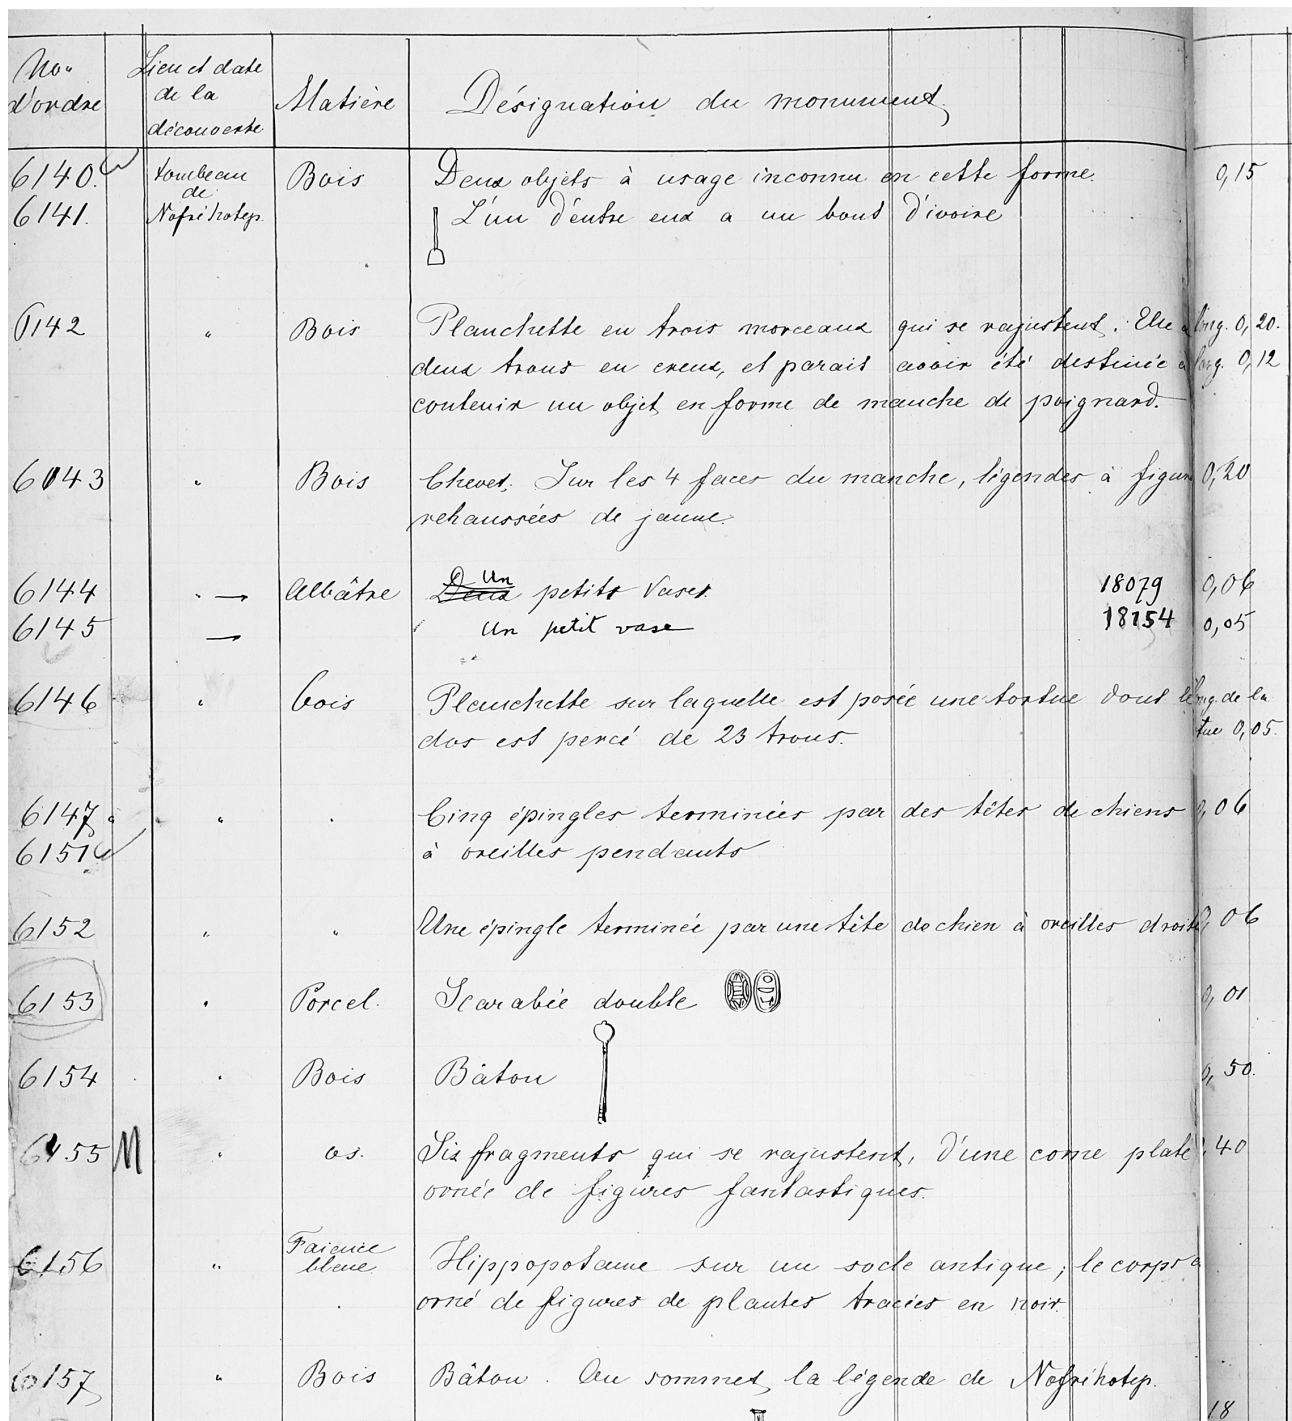 Nos d'ordre	Lieu et date de la découverte	Matière	Désignation du monument
6140	tombeau de	Bois	Deux objets à usage inconnu en cette forme.	0,15
6141.	Nofrihotep.	L'un d'entre eux a un bout d'ivoire
6142	"	Bois	Planchette en trois morceaux qui se rajustent. Elle a	long. 0,20.
deux trous en creux, et parait avoir été destinée à	larg. 0,12
contenir un objet en forme de manche de poignard.
6143	"	Bois	Chevet. Sur les 4 faces du manche, légendes à figure	0,20
rehaussées de jaune.
6144	" →	Albâtre	Deux Un petits vases.	18079	0,06
6145	→	Un petit vase	18154	0,05
6146	"	bois	Planchette sur laquelle est posée une tortue dont le	long. de la
dos est percé de 23 trous.	tue 0,05.
6147	"	"	Cinq épingles terminées par des têtes de chiens	0,06
6151	à oreilles pendants
6152	"	"	Une épingle terminée par une tête de chien à oreilles droites	0,06
6153	"	Porcel.	Scarabée double	0,01
6154	"	Bois	Bâton	0,50.
6155	M	"	os.	Six fragments qui se rajustent, d'une corne plate	,40
ornée de figures fantastiques.
6156	"	Faience bleue.	Hippopotame sur un socle antique; le corps a
orné de figures de plantes tracées en noir.
6157	"	Bois	Bâton. Au sommet, la légende de Nofrihotep.
18